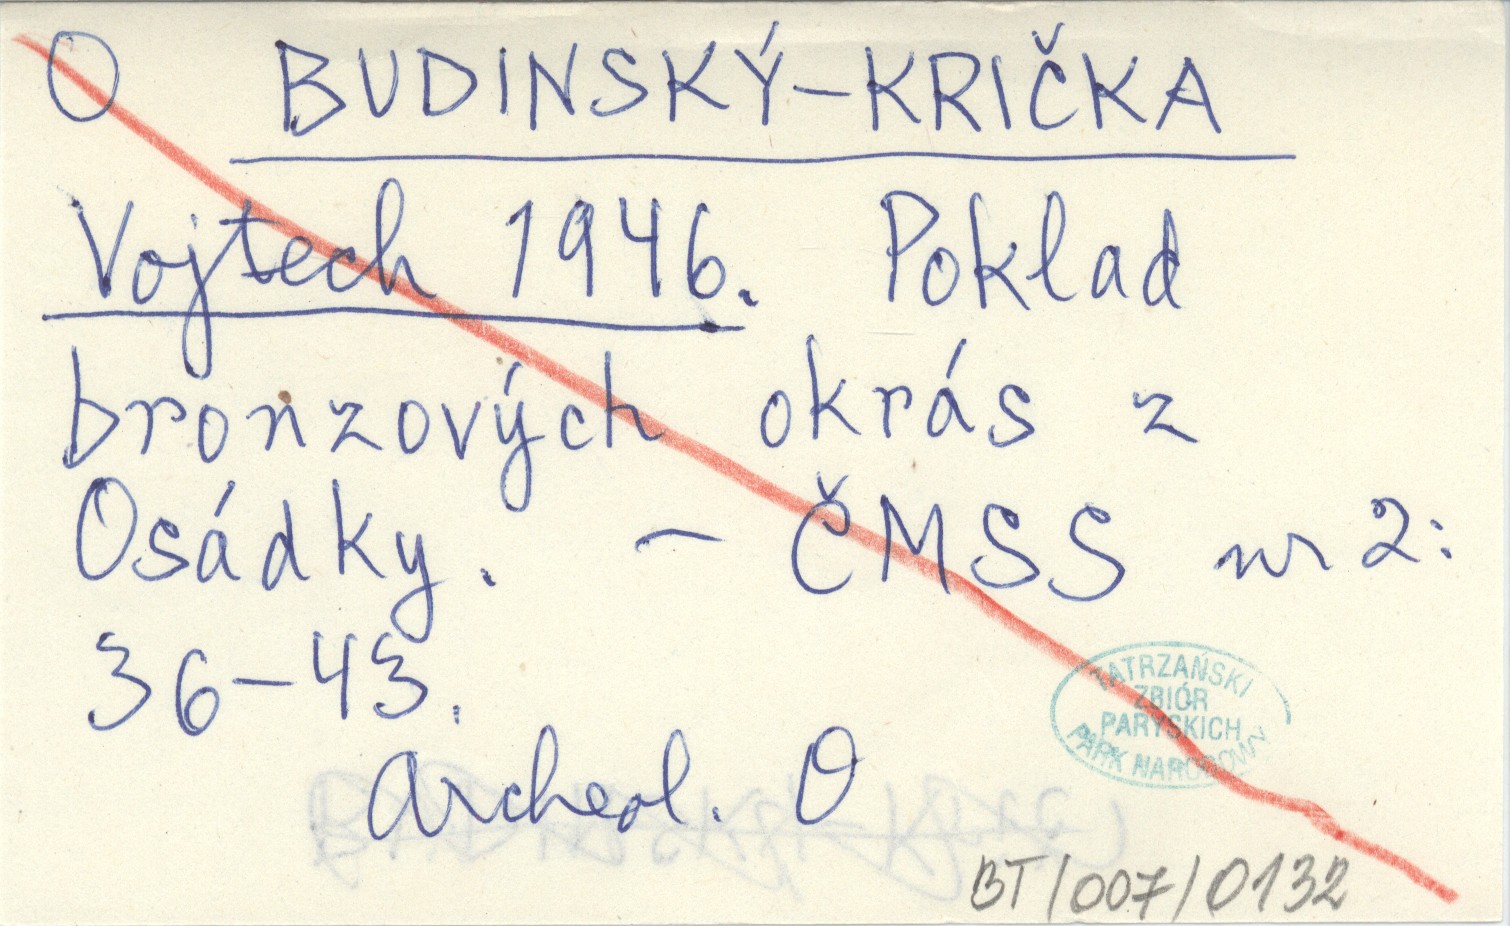 O BUDINSKÝ-KRIČKA
Vojtech 1946. Poklad
bronzových okrás z
Osádky. - ČMSS nr 2:
36-43.
Archeol. O
TATRZAŃSKI
ZBIÓR
PARYSKICH
PARK NARODOWY
BT/007/0132